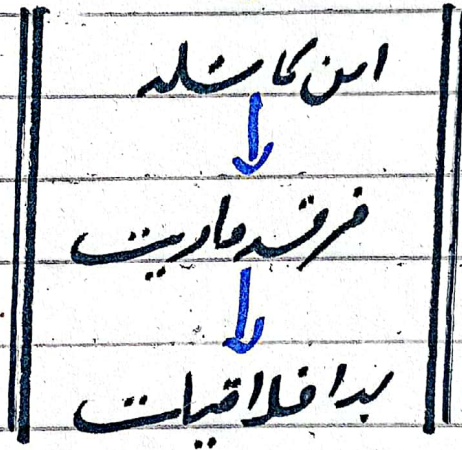 امن کا مسئلہ
فرقہ واریت
بداخلاقیات